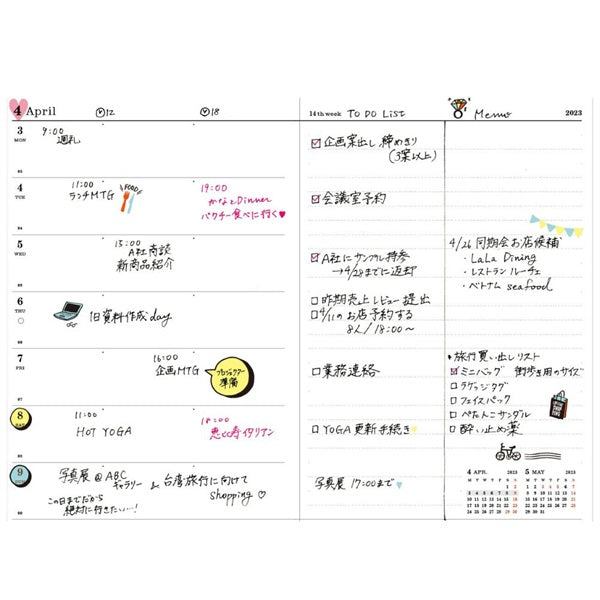 4 April
12
18
3 MON
9:00
週礼
4 TUE
11:00
ランチMTG
FOOD
19:00
かなとDinner
パクチー食べに行く♥
5 WED
13:00
A社商談
新商品紹介
6 THU
旧資料作成day
7 FRI
16:00
企画MTG
プロジェクター
準備
8 SAT
11:00
HOT YOGA
18:00
恵比寿イタリアン
9
写真展@ABC
ギャラリー
& 台湾旅行に向けて
shopping ♡
この日までだから
絶対に行きたい〜!
14th week TO DO LIST
☑企画案出し 締めきり
(3案以上)
☑会議室予約
☑A社にサンプル持参
→4/28までに返却
□昨期売上レビュー提出
□4/11のお店予約する
8人/18:00〜
□業務連絡
□YOGA 更新手続き
写真展 17:00まで
Memo 2023
4/26 同期会お店候補
・LaLa Dining
・レストラン ルーチェ
・ベトナム seafood
旅行買い出しリスト
☑ミニバッグ 街歩き用のサイズ
□ラゲッジタグ
□フェイスパック
□ぺたんこサンダル
□酔い止め薬
4 APR. 2023
M T W T F S S
1 2
3 4 5 6 7 8 9
10 11 12 13 14 15 16
17 18 19 20 21 22 23
24 25 26 27 28 29 30
5 MAY 2023
M T W T F S S
1 2 3 4 5 6 7
8 9 10 11 12 13 14
15 16 17 18 19 20 21
22 23 24 25 26 27 28
29 30 31